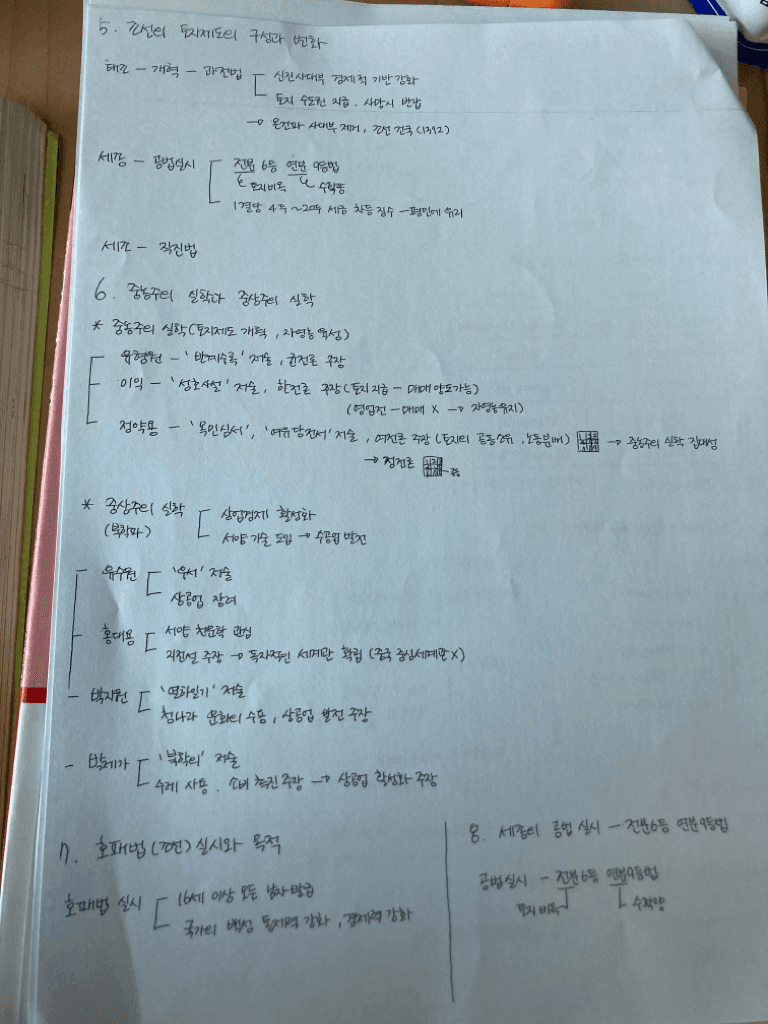 5. 조선의 토지제도의 구성과 변화
태조 - 개혁 - 과전법 신진사대부 경제적 기반 강화
토지 수조권 지급, 사망시 반납
→ 온건파 사대부 제거, 조선 건국 (1392)
세종 - 공법실시 전분 6등 연분 9등법
토지비옥 수확량
1결당 4두 ~ 20두 세금 차등 징수 - 평민에 유리
세조 - 직전법
6. 중농주의 실학과 중상주의 실학
* 중농주의 실학 (토지제도 개혁, 자영농 육성)
유형원 - '반계수록' 저술, 균전론 주장
이익 - '성호사설' 저술, 한전론 주장 (토지지급 - 매매 양도가능)
(영업전 - 매매 X → 자영농유지)
정약용 - '목민심서', '여유당전서' 저술, 여전론 주장 (토지의 공동소유, 노동분배) → 중농주의 실학 집대성
→ 정전론 공동
* 중상주의 실학 상업경제 활성화
(북학파) 서양 기술 도입 → 수공업 발전
유수원 '우서' 저술
상공업 장려
홍대용 서양 천문학 관심
지전설 주장 → 독자적인 세계관 확립 (중국 중심세계관 X)
- 박지원 '열하일기' 저술
청나라 문화의 수용, 상공업 발전 주장
- 박제가 '북학의' 저술
수레 사용, 소비 촉진 주장 → 상공업 활성화 주장
7. 호패법 (조선) 실시와 목적
호패법 실시 16세 이상 모든 남자 발급
국가의 백성 통제력 강화, 경제력 강화
8. 세종의 공법 실시 - 전분6등 연분9등법
공법실시 - 전분6등 연분9등법
토지비옥 수확량